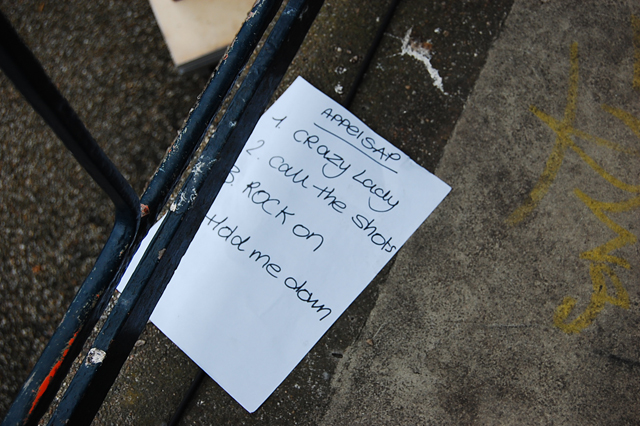 APPELSAP
1. CRAZY Lady
2. Call the shots
3. ROCK on
Hold me down